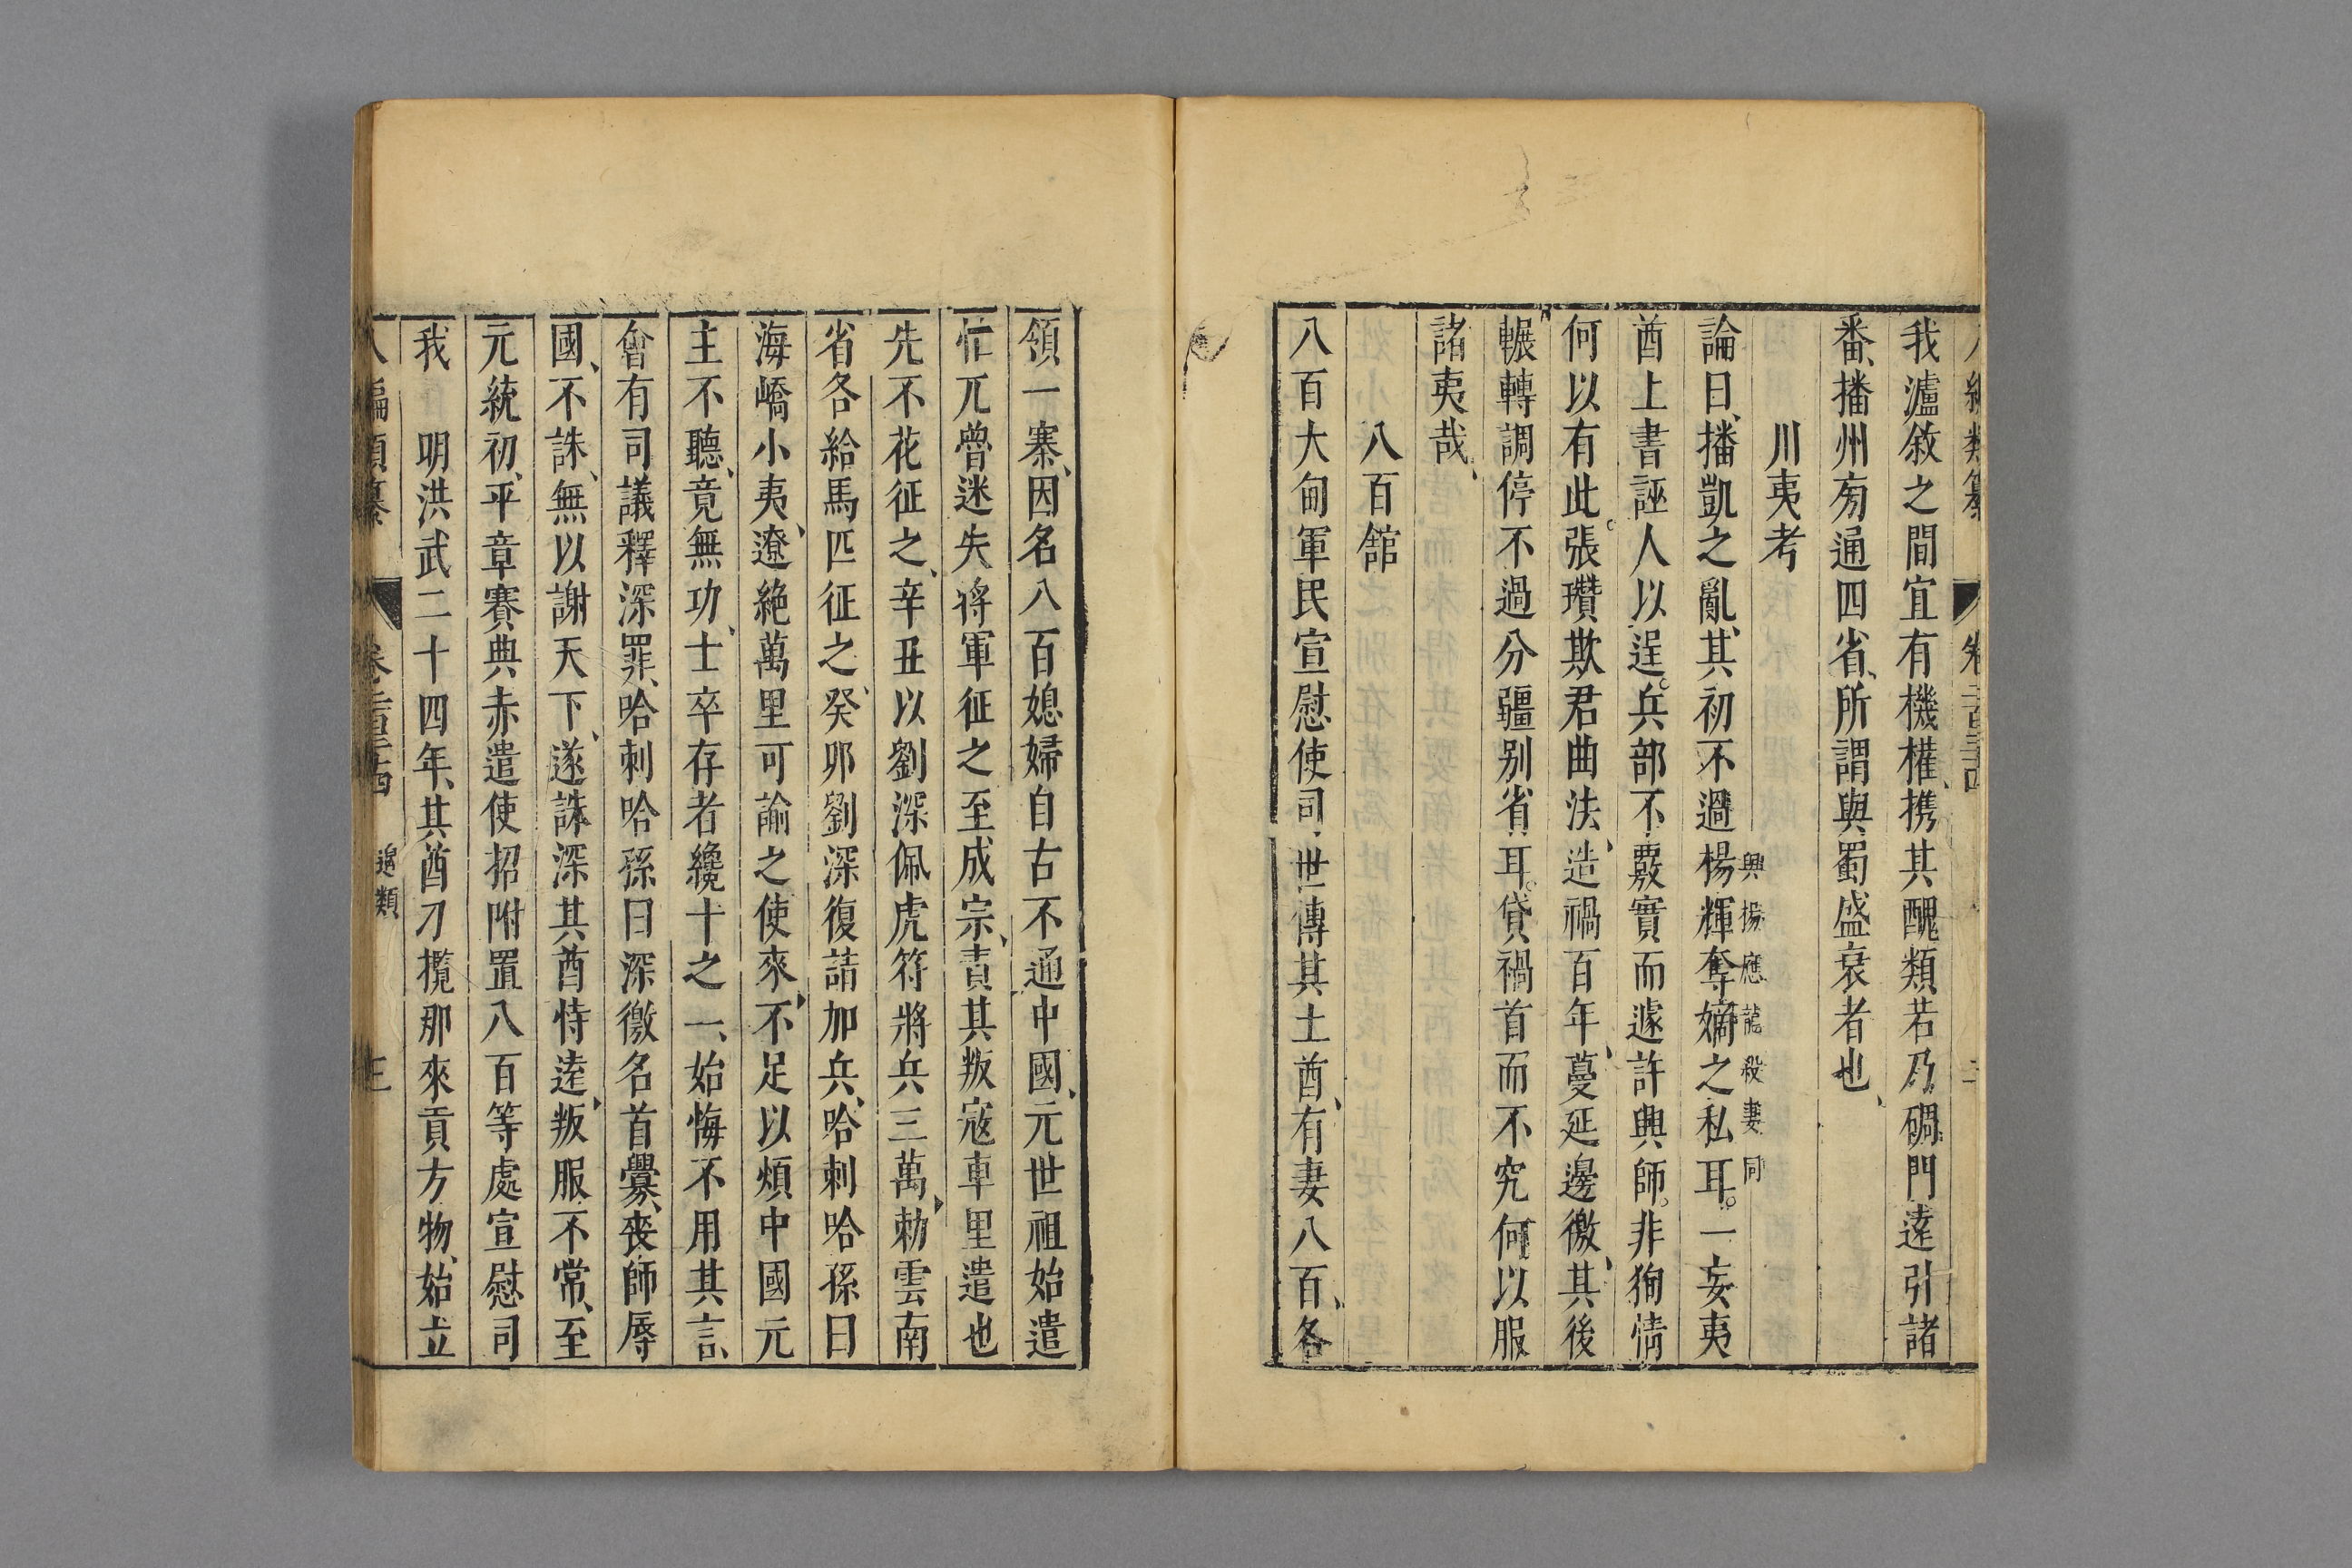 編類纂 卷二百三十四
我瀘敘之間宜有機權、携其醜類、若乃碉門遠引諸
番、播州旁通四省、所謂與蜀盛衰者也、
川夷考
論曰、播凱之亂、其初不過楊輝奪嫡之私耳。一妄夷
與楊應龍殺妻同
酋上書誣人以逞。兵部不覈實而遽許興師。非狥情
何以有此。張瓚欺君曲法、造禍百年、蔓延邊徼、其後
輾轉調停不過分疆别省耳。貸禍首而不究何以服
諸夷哉、
八百館
八百大甸軍民宣慰使司、世傳其土酋、有妻八百、各
領一寨、因名八百媳婦自古不通中國、元世祖始遣
忙兀魯迷失将軍征之至、成宗、責其叛寇車里遣也
先不花征之、辛丑以劉深佩虎符將兵三萬、勑雲南
省各給馬匹征之、癸卯劉深復請加兵、哈剌哈孫曰
海嶠小夷、遼絶萬里可諭之使來、不足以煩中國元
主不聽、竟無功、士卒存者纔十之一、始悔不用其言、
會有司議釋深罪、哈刺哈孫曰深徼名首釁、喪師辱
國、不誅、無以謝天下、遂誅深其酋恃逺、叛服不常、至
元統初、平章賽典赤遣使招附置八百等處宣慰司
我 明洪武二十四年、其酋刀攬那來貢方物、始立
八編類纂 卷二百三十四 邊類 三